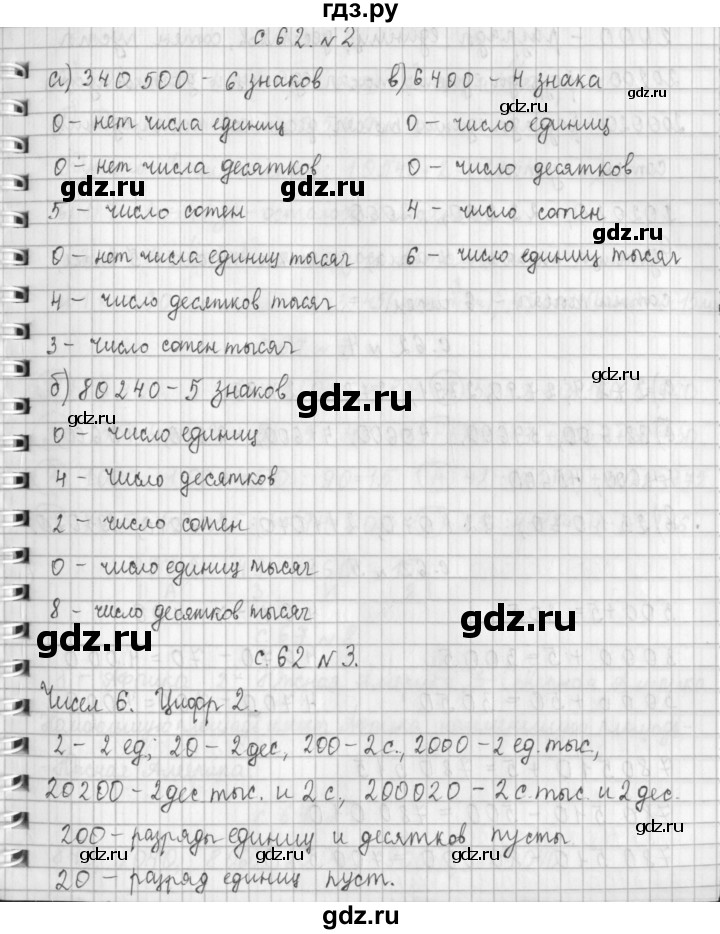 гдз.ру
с.62. №2
а) 340 500 – 6 знаков
0 – нет числа единиц
0 – нет числа десятков
5 – число сотен
0 – нет числа единиц тысяч
4 – число десятков тысяч
3 – число сотен тысяч
в) 6400 – 4 знака
0 – число единиц
0 – число десятков
4 – число сотен
6 – число единиц тысяч
б) 80240 – 5 знаков
0 – число единиц
4 – число десятков
2 – число сотен
0 – число единиц тысяч
8 – число десятков тысяч
с.62 №3.
Чисел 6. Цифр 2.
2 – 2 ед; 20 – 2дес, 200 – 2 с., 2000 – 2 ед. тыс,
20200 – 2дес тыс. и 2 с, 200020 – 2 с.тыс. и 2 дес.
200 – разряды единиц и десятков пусты
20 – разряд единиц пуст.
gdz.ru
gdz.ru
gdz.ru
gdz.ru
gdz.ru
gdz.ru
gdz.ru
gdz.ru
gdz.ru
gdz.ru
gdz.ru
gdz.ru